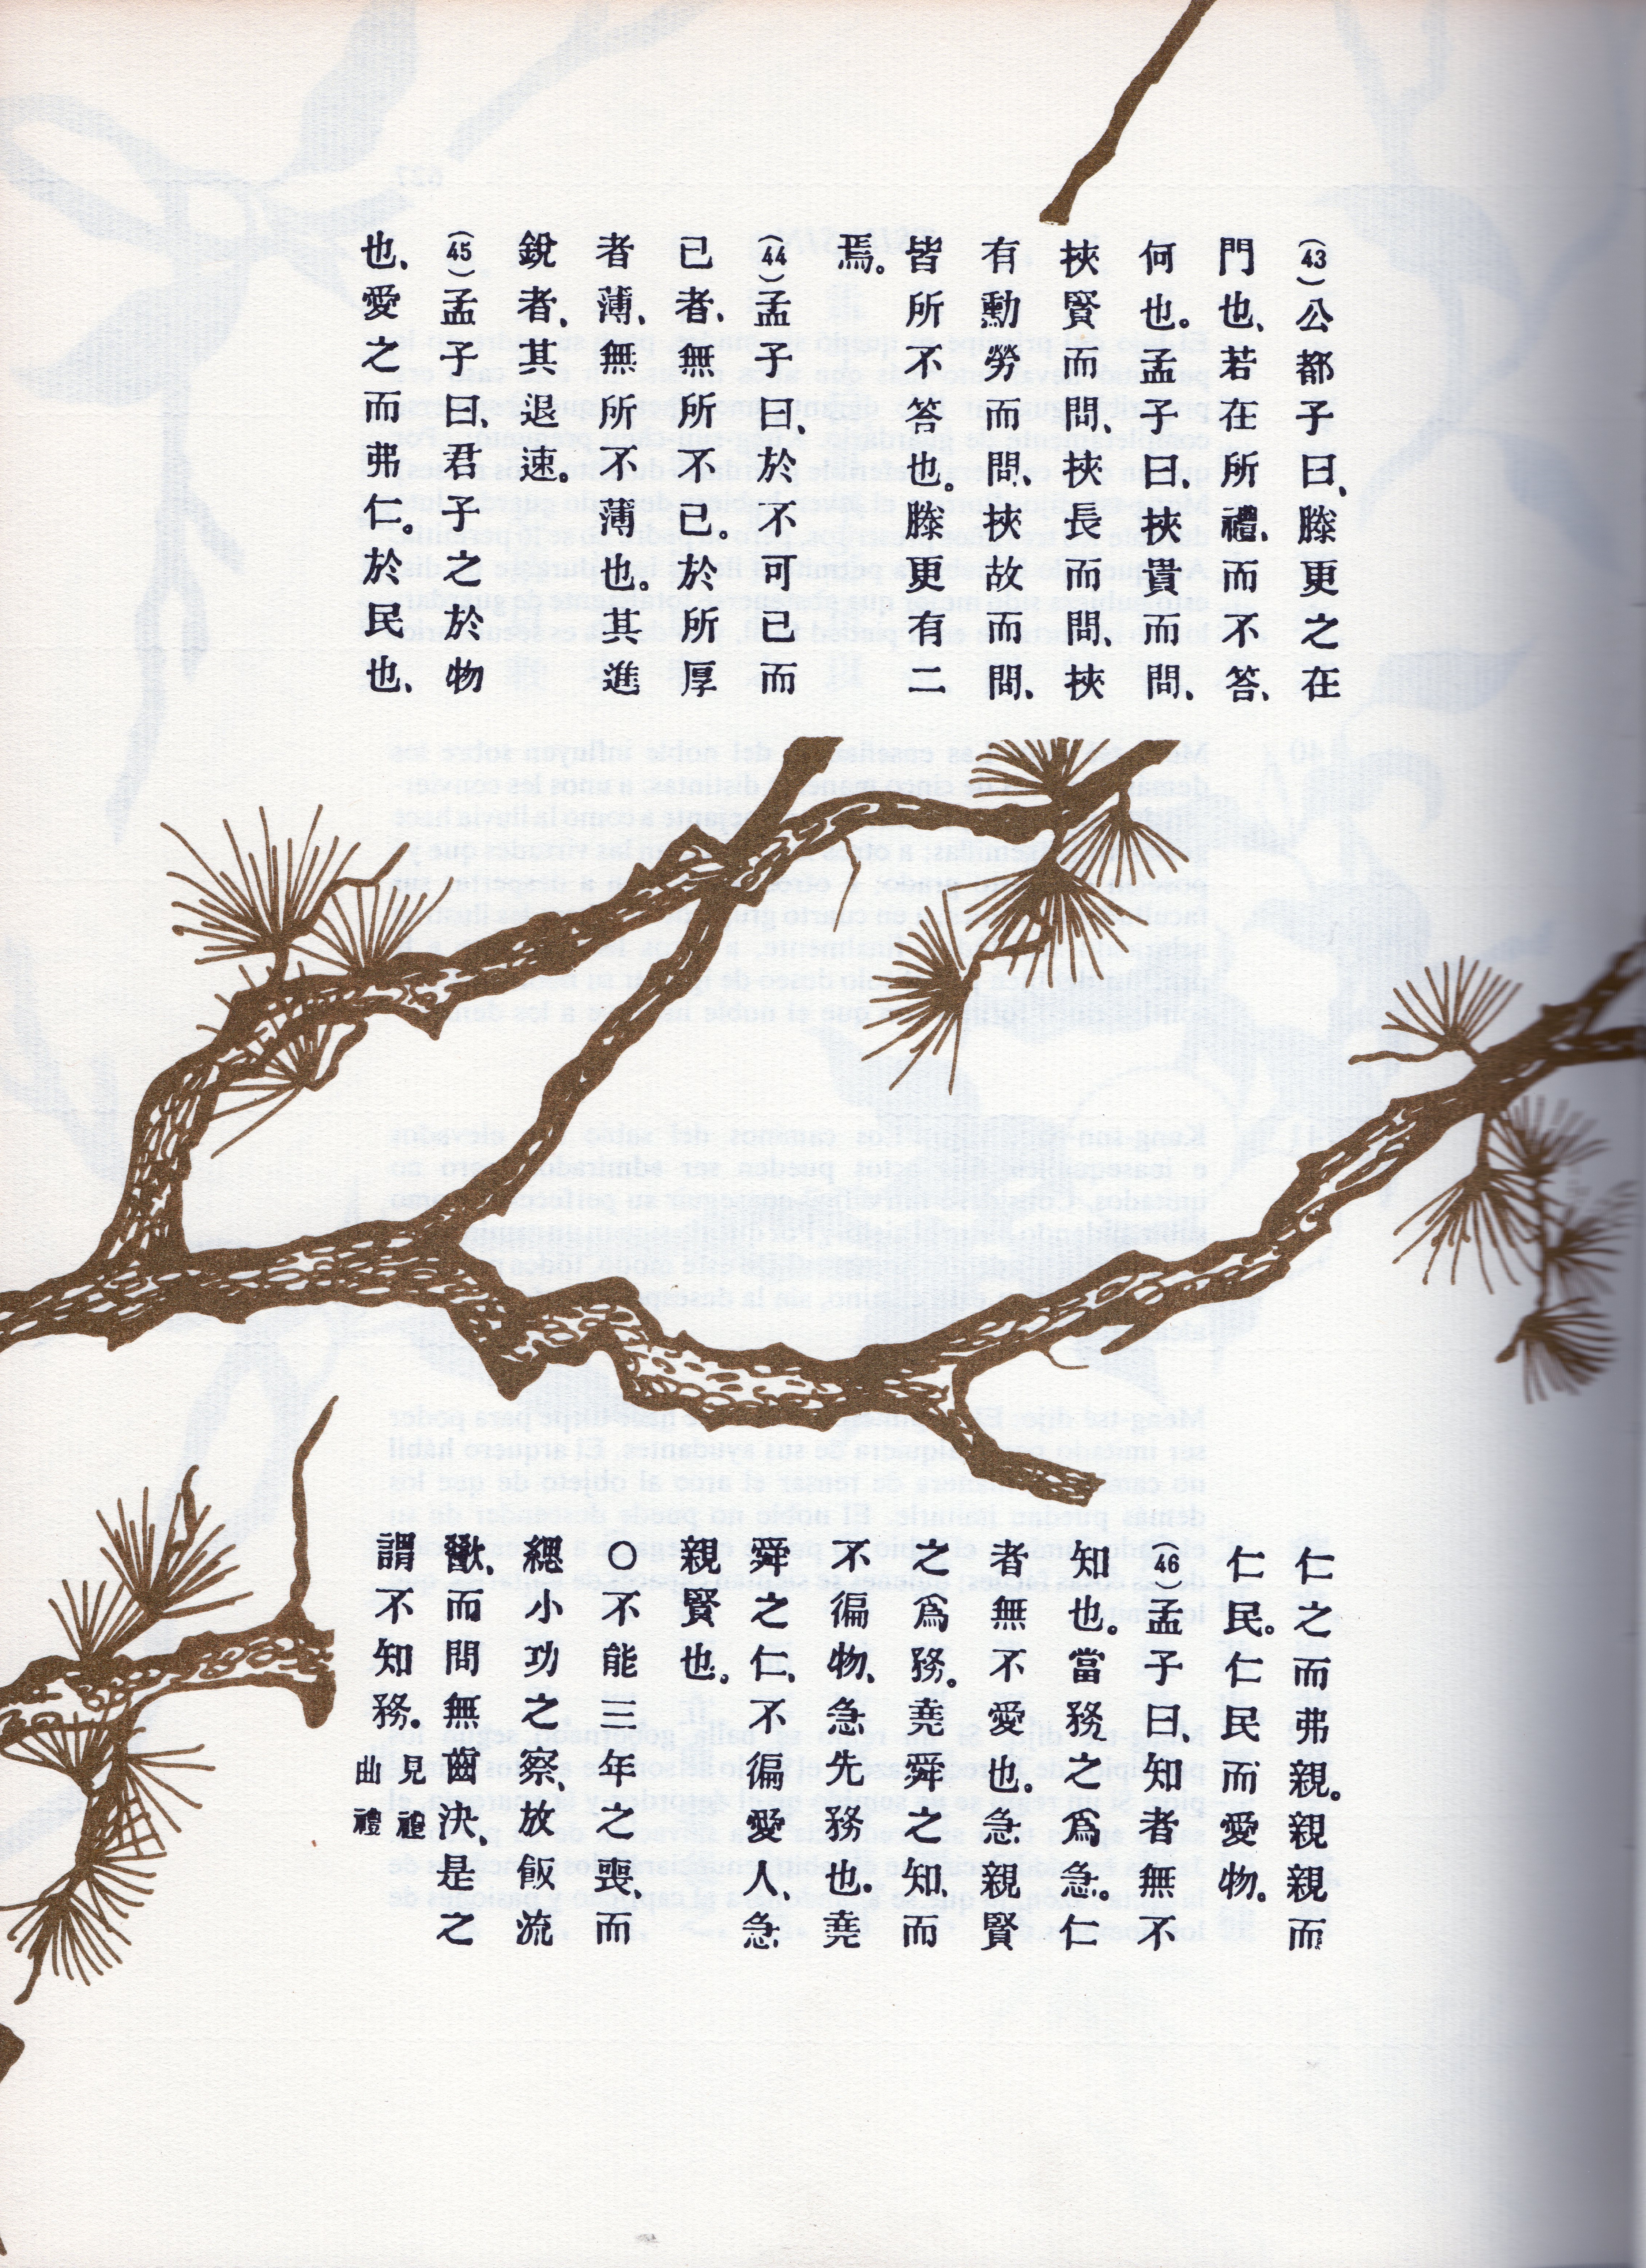 (43)公都子曰、滕更之在
門也、若在所禮、而不答、
何也。孟子曰、挾貴而問、
挾賢而問、挾長而問、挾
有勳勞而問、挾故而問、
皆所不答也。滕更有二
焉。
(44)孟子曰、於不可已而
已者、無所不已。於所厚
者薄、無所不薄也。其進
銳者、其退速。
(45)孟子曰、君子之於物
也、愛之而弗仁。於民也、
仁之而弗親。親親而
仁民。仁民而愛物。
(46)孟子曰、知者無不
知也。當務之爲急。仁
者無不愛也。急親賢
之爲務。堯舜之知、而
不徧物、急先務也。堯
舜之仁、不徧愛人、急
親賢也。
○不能三年之喪、而
緦小功之察、放飯流
歠、而問無齒決、是之
謂不知務。
見禮
曲禮